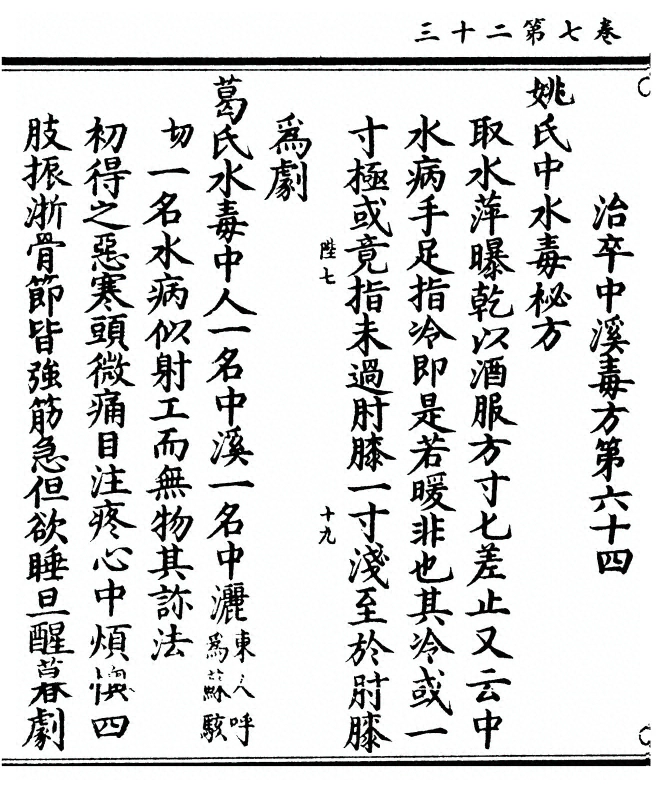 三十二第七卷
治卒中溪毒方第六十四
姚氏中水毒秘方
取水萍曝乾以酒服方寸匕差止又云中
水病手足指冷即是若暖非也其冷或一
寸極或竟指未過肘膝一寸淺至於肘膝
陛七
十九
為劇
葛氏水毒中人一名中溪一名中灑東人呼為蘇駭
切一名水病似射工而無物其診法
初得之惡寒頭微痛目注疼心中煩懊四
肢振淅骨節皆強筋急但欲睡旦醒暮劇